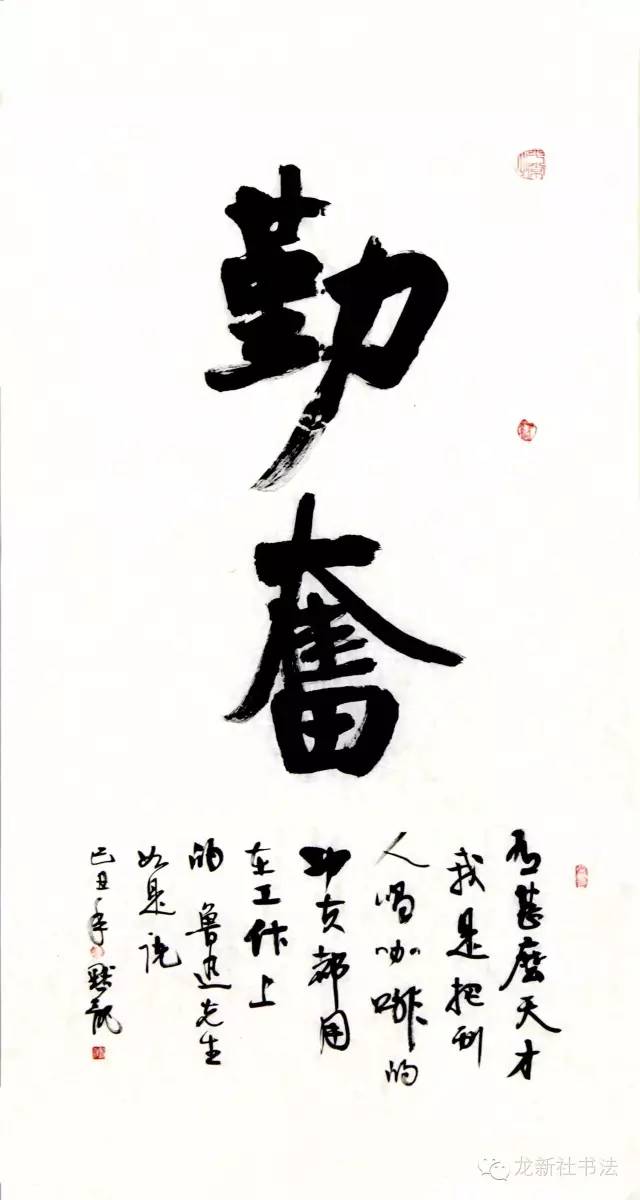 勤奮
有甚麼天才
我是把别
人喝咖啡的
功夫都用
在工作上
的 魯迅先生
如是说
己丑年 默龍
龙新社书法